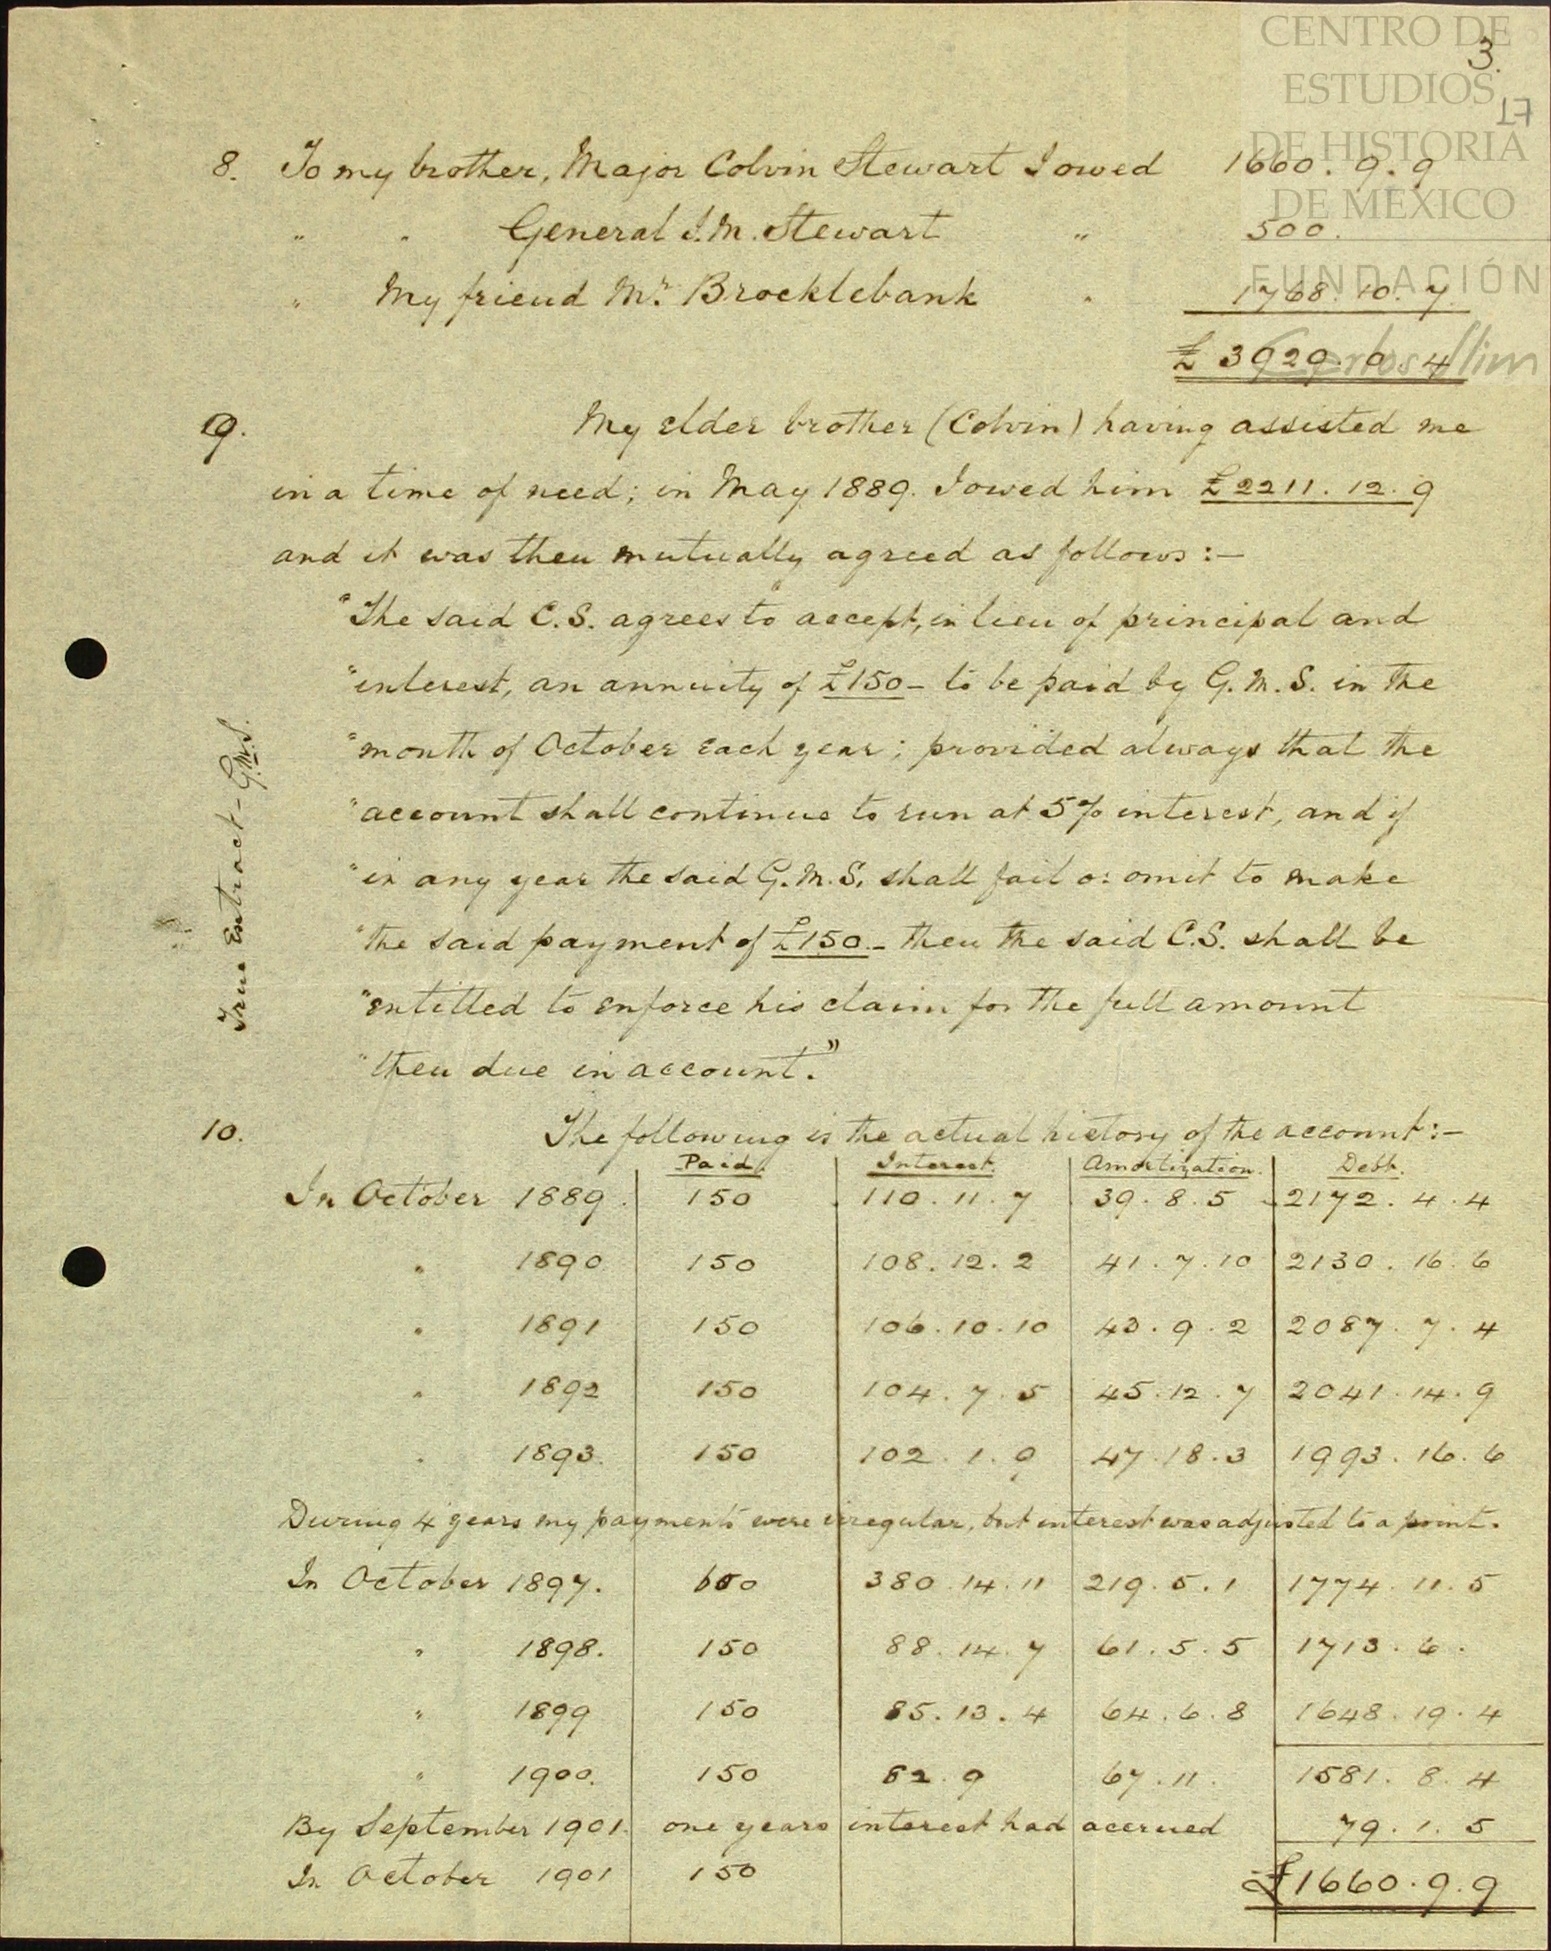 CENTRO DE
ESTUDIOS
DE HISTORIA
DE MEXICO
FUNDACIÓN
Carlos Slim
3.
17
8. To my brother, Major Colvin Stewart I owed 1660. 9. 9
" " General J.M. Stewart " 500.
" My friend Mr. Brocklebank " 1768. 10. 7
£ 3929. 0. 4
9. My elder brother (Colvin) having assisted me
in a time of need; in May 1889. I owed him £2211. 12. 9
and it was then mutually agreed as follows:—
"The said C.S. agrees to accept, in lieu of principal and
"interest, an annuity of £150– to be paid by G.M.S. in the
"month of October each year; provided always that the
"account shall continue to run at 5% interest, and if
"in any year the said G.M.S. shall fail or omit to make
"the said payment of £150.– then the said C.S. shall be
"entitled to enforce his claim for the full amount
"then due in account."
True Extract – G.M.S.
10. The following is the actual history of the account:–
Paid. Interest. Amortization. Debt.
In October 1889. 150 110. 11. 7 39. 8. 5 2172. 4. 4
" 1890 150 108. 12. 2 41. 7. 10 2130. 16. 6
" 1891 150 106. 10. 10 43. 9. 2 2087. 7. 4
" 1892 150 104. 7. 5 45. 12. 7 2041. 14. 9
" 1893. 150 102. 1. 9 47. 18. 3 1993. 16. 6
During 4 years my payments were irregular, but interest was adjusted to a point.
In October 1897. 600 380. 14. 11 219. 5. 1 1774. 11. 5
" 1898. 150 88. 14. 7 61. 5. 5 1713. 6.
" 1899 150 85. 13. 4 64. 6. 8 1648. 19. 4
" 1900. 150 82. 9 67. 11. 1581. 8. 4
By September 1901. one years interest had accrued 79. 1. 5
In October 1901 150 £1660. 9. 9